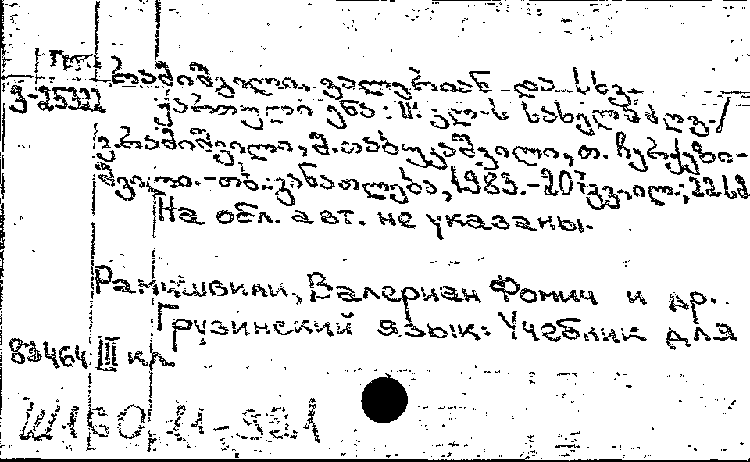 რამიშვილი, ვალერიან და სხვ.
3-25322 ქართული ენა: III კლ-ის სახელმძღვ./
ვ. რამიშვილი, მ. თაბუკაშვილი, თ. ჩერქეზი-
შვილი.-თბ.: განათლება, 1983.-207 გვ.: ილ.; 22სმ
На обл. авт. не указаны.
Рамишвили, Валериан Фомич и др.
Грузинский язык: Учебник для
83464 III кл.
Ш160.11-921